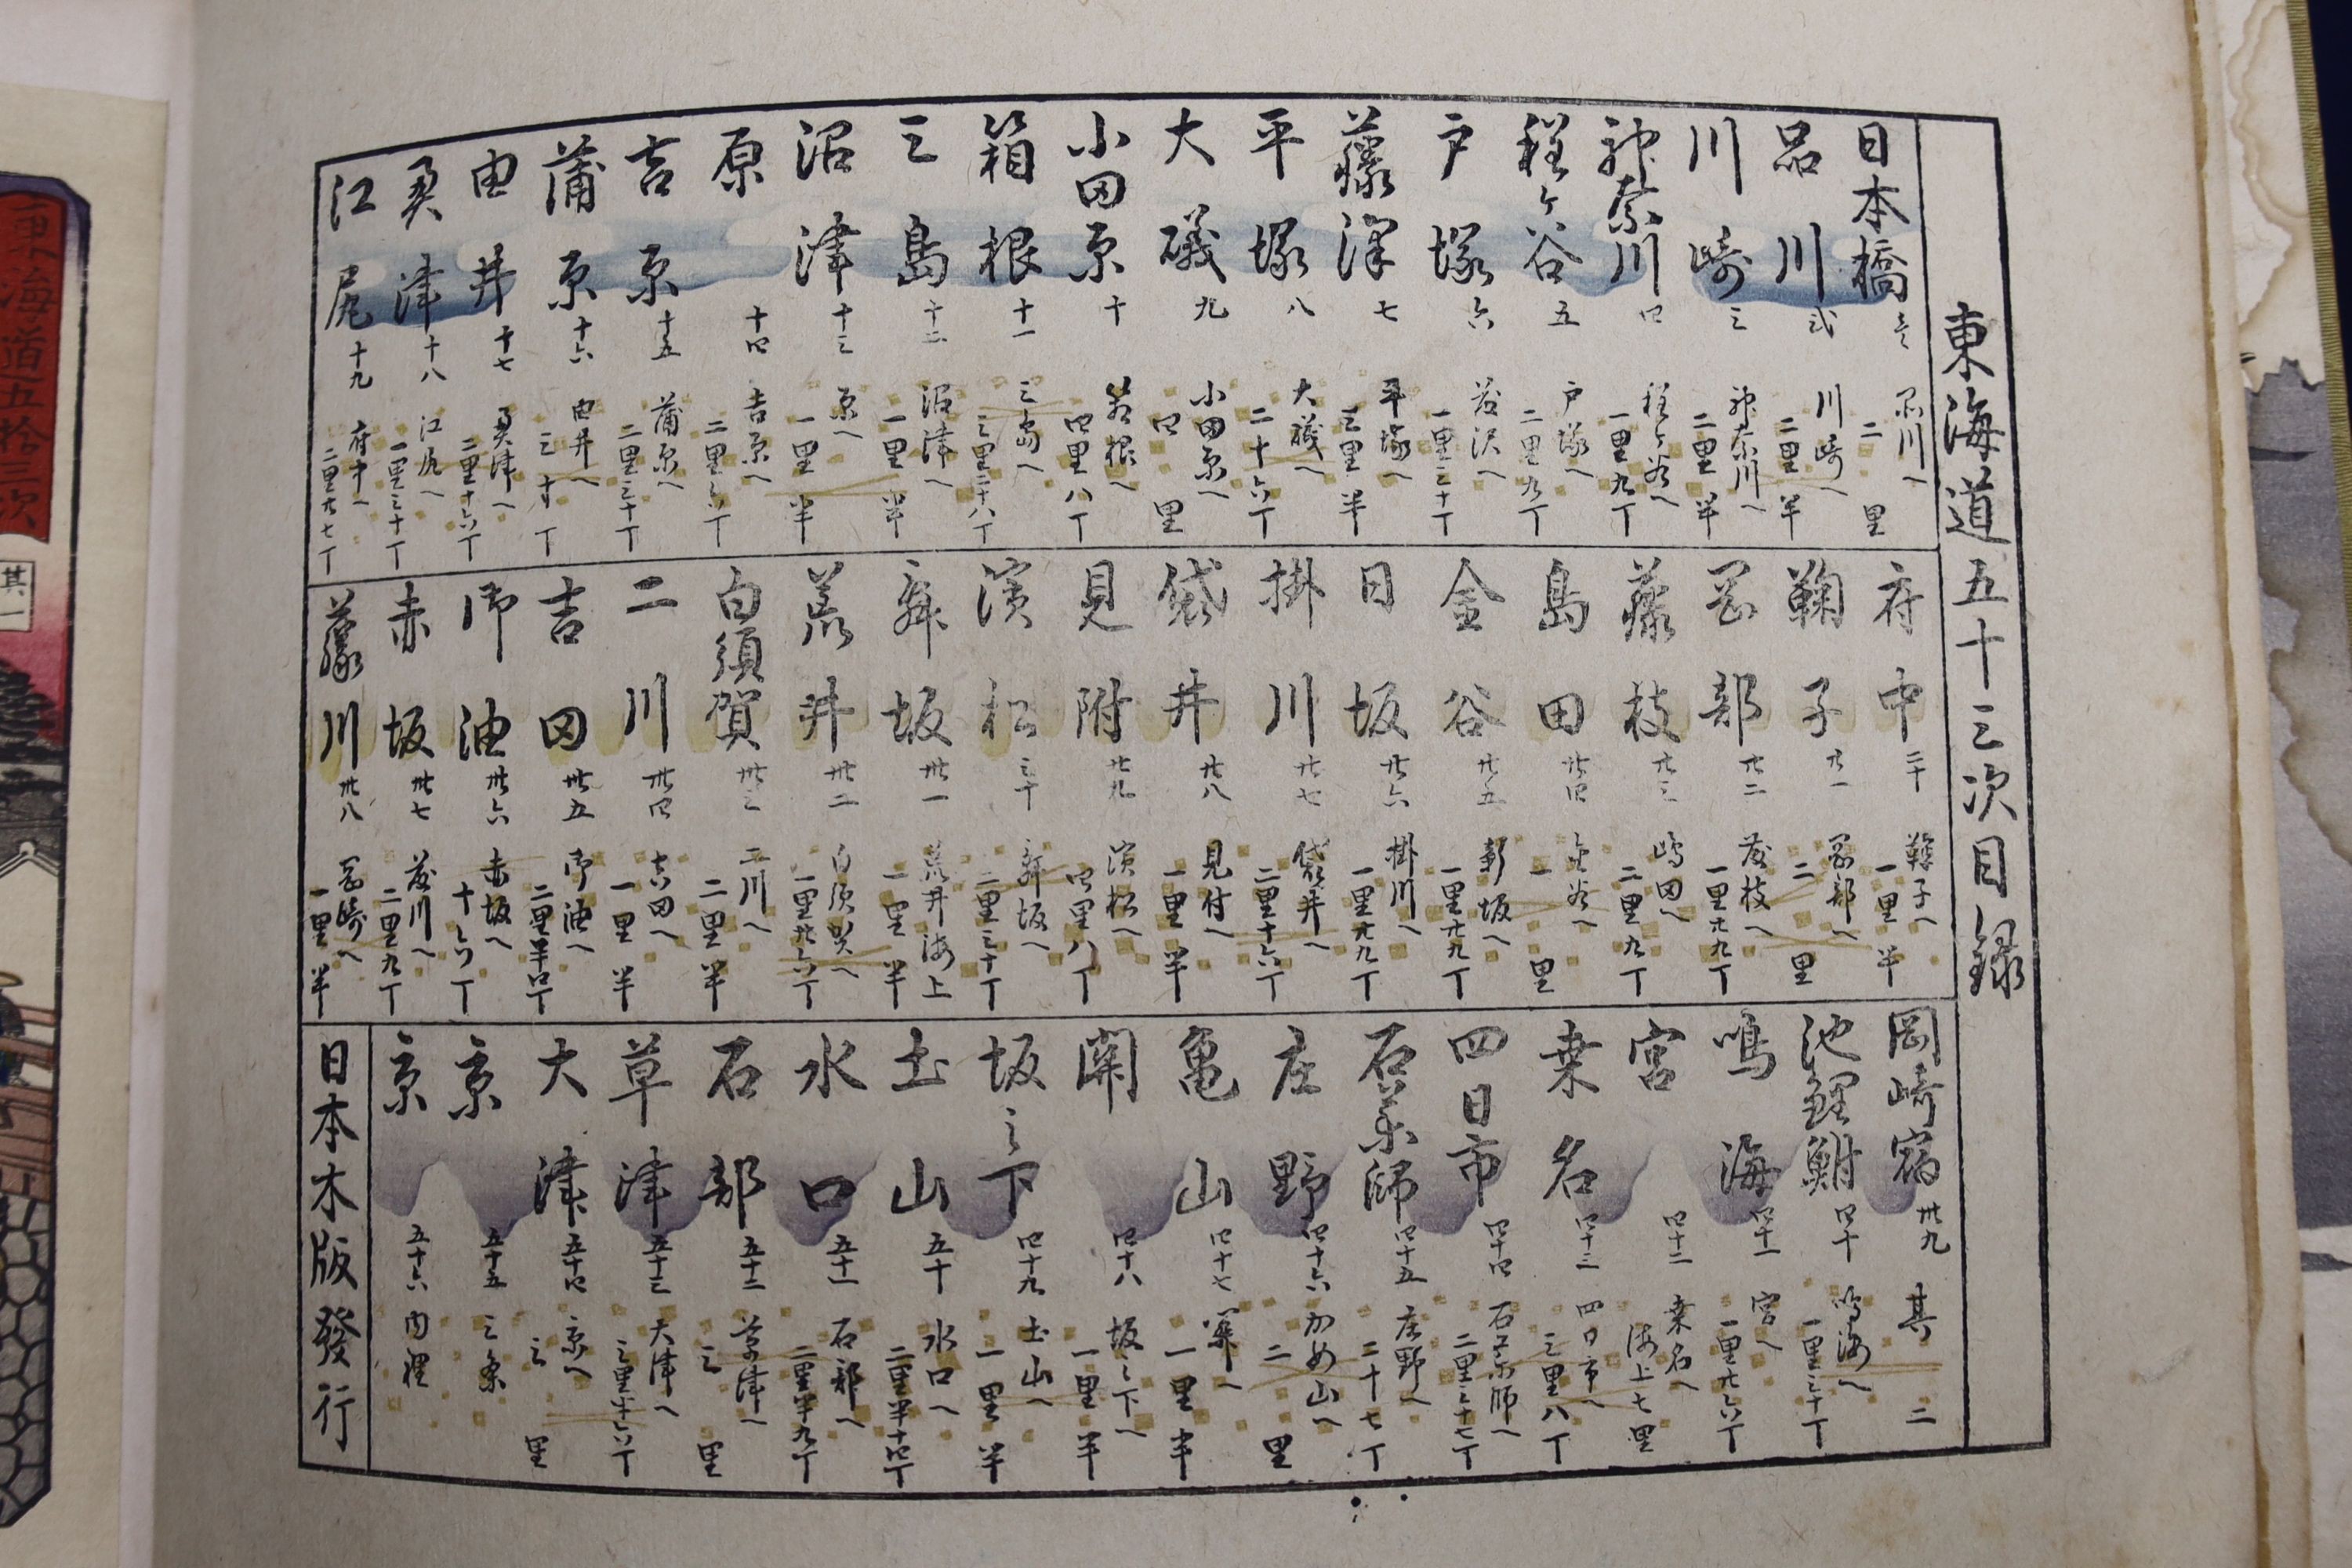 東海道五十三次目録
日本橋 壱 品川へ 二里
品川 弐 川崎へ 二里半
川崎 三 神奈川へ 二里半
神奈川 四 程ヶ谷へ 一里九丁
程ヶ谷 五 戸塚へ 二里九丁
戸塚 六 藤沢へ 一里三十丁
藤澤 七 平塚へ 三里半
平塚 八 大磯へ 二十六丁
大磯 九 小田原へ 四里
小田原 十 箱根へ 四里八丁
箱根 十一 三島へ 三里二十八丁
三島 十二 沼津へ 一里半
沼津 十三 原へ 一里半
原 十四 吉原へ 二里六丁
吉原 十五 蒲原へ 二里三十丁
蒲原 十六 由井へ 三十丁
由井 十七 奥津へ 二里十六丁
奥津 十八 江尻へ 一里三十丁
江尻 十九 府中へ 二里廿七丁
府中 二十 鞠子へ 一里半
鞠子 廿一 岡部へ 二里
岡部 廿二 藤枝へ 一里廿九丁
藤枝 廿三 嶋田へ 二里九丁
島田 廿四 金谷へ 一里
金谷 廿五 新坂へ 一里廿九丁
日坂 廿六 掛川へ 一里廿九丁
掛川 廿七 袋井へ 二里十六丁
袋井 廿八 見付へ 一里半
見附 廿九 濱松へ 四里八丁
濱松 三十 舞坂へ 二里三十丁
舞坂 卅一 荒井海上 一里半
荒井 卅二 白須賀へ 一里廿六丁
白須賀 卅三 二川へ 二里半
二川 卅四 吉田へ 一里半
吉田 卅五 御油へ 二里半四丁
御油 卅六 赤坂へ 十六丁
赤坂 卅七 藤川へ 二里九丁
藤川 卅八 岡崎へ 一里半
岡崎宿 卅九 其二
池鯉鮒 四十 鳴海へ 一里三十丁
鳴海 四十一 宮へ 一里廿六丁
宮 四十二 桑名へ 海上七里
桑名 四十三 四日市へ 三里八丁
四日市 四十四 石薬師へ 二里三十七丁
石薬師 四十五 庄野へ 二十七丁
庄野 四十六 かめ山へ 二里
亀山 四十七 関へ 一里半
関 四十八 坂之下へ 一里半
坂之下 四十九 土山へ 一里半
土山 五十 水口へ 二里半十四丁
水口 五十一 石部へ 二里半九丁
石部 五十二 草津へ 三里
草津 五十三 大津へ 三里半六丁
大津 五十四 京へ 三里
京 五十五 三条
京 五十六 内裡
日本木版發行
東海道五拾三次
其一